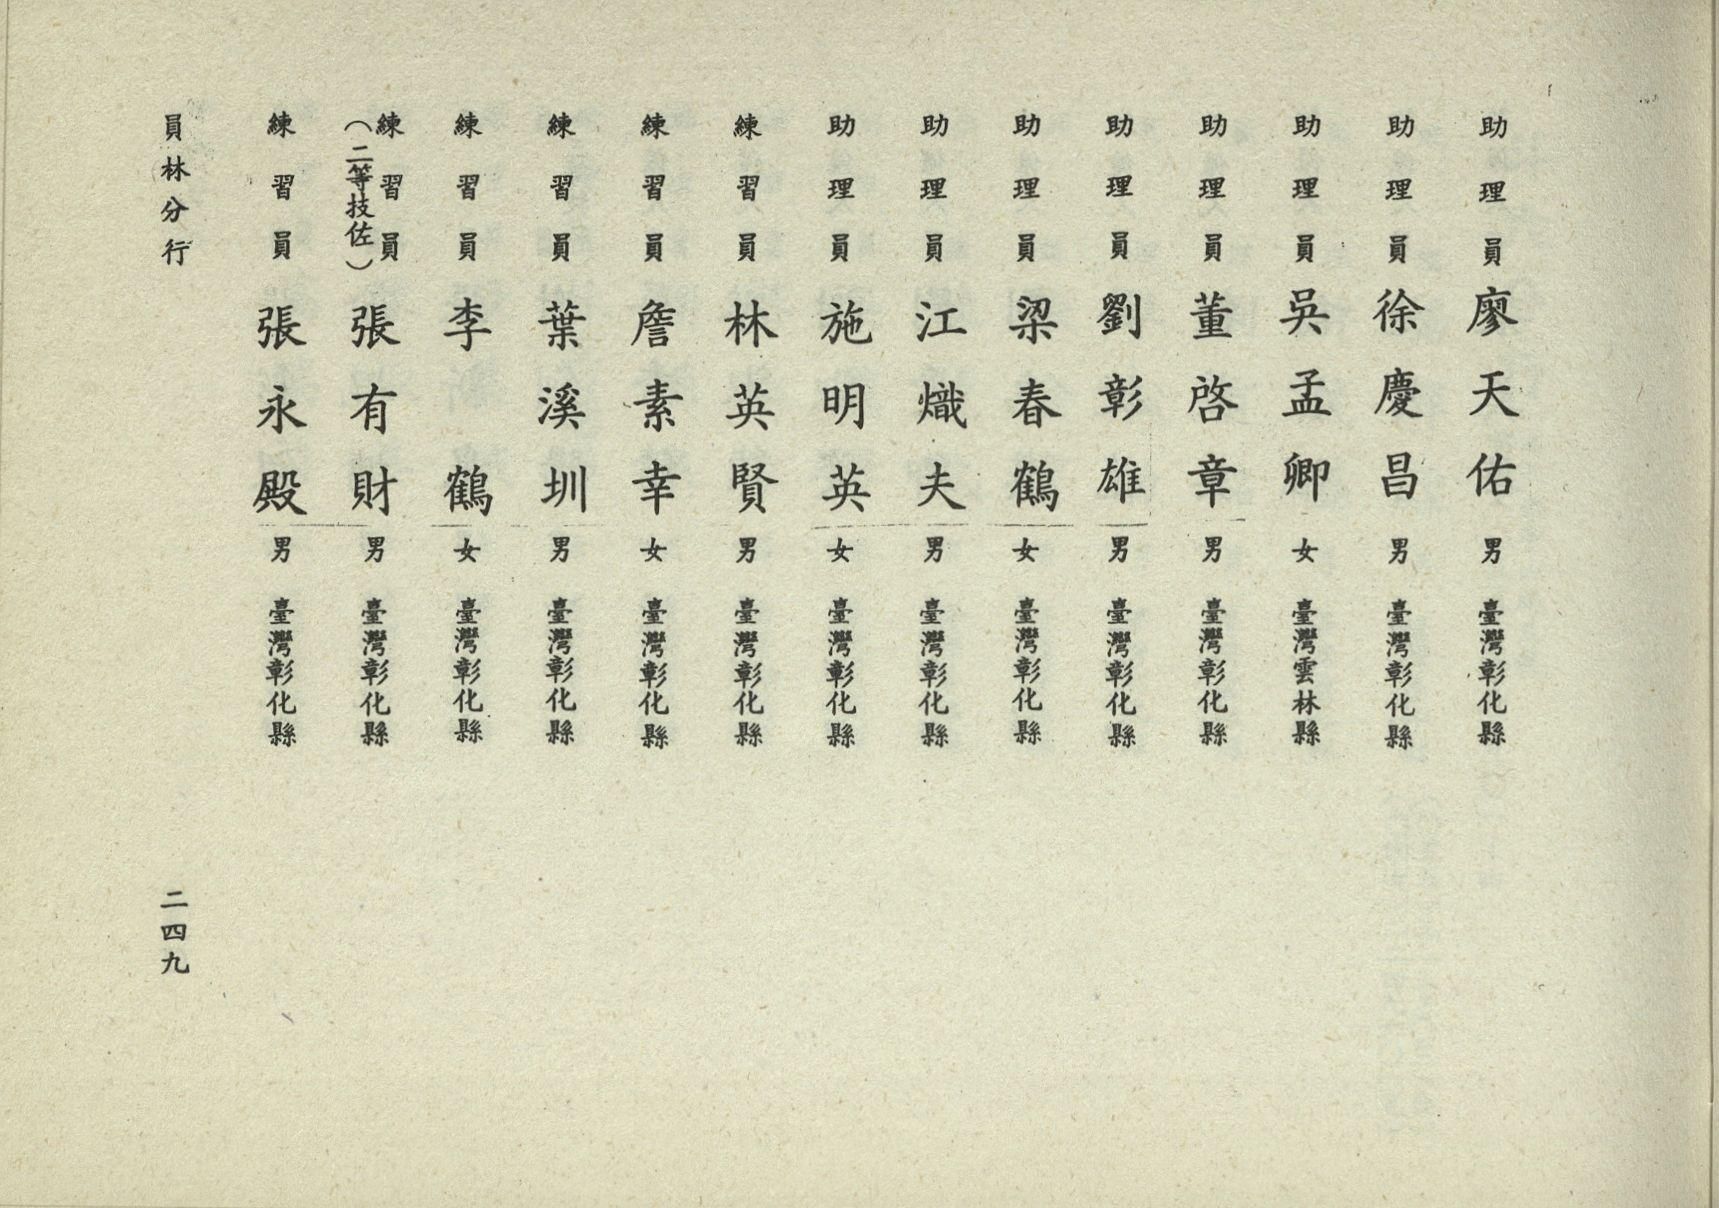 助理員 廖天佑 男 臺灣彰化縣
助理員 徐慶昌 男 臺灣彰化縣
助理員 吳孟卿 女 臺灣雲林縣
助理員 董啓章 男 臺灣彰化縣
助理員 劉彰雄 男 臺灣彰化縣
助理員 梁春鶴 女 臺灣彰化縣
助理員 江熾夫 男 臺灣彰化縣
助理員 施明英 女 臺灣彰化縣
練習員 林英賢 男 臺灣彰化縣
練習員 詹素幸 女 臺灣彰化縣
練習員 葉溪圳 男 臺灣彰化縣
練習員 李鶴 女 臺灣彰化縣
練習員(二等技佐) 張有財 男 臺灣彰化縣
練習員 張永殿 男 臺灣彰化縣
員林分行 二四九